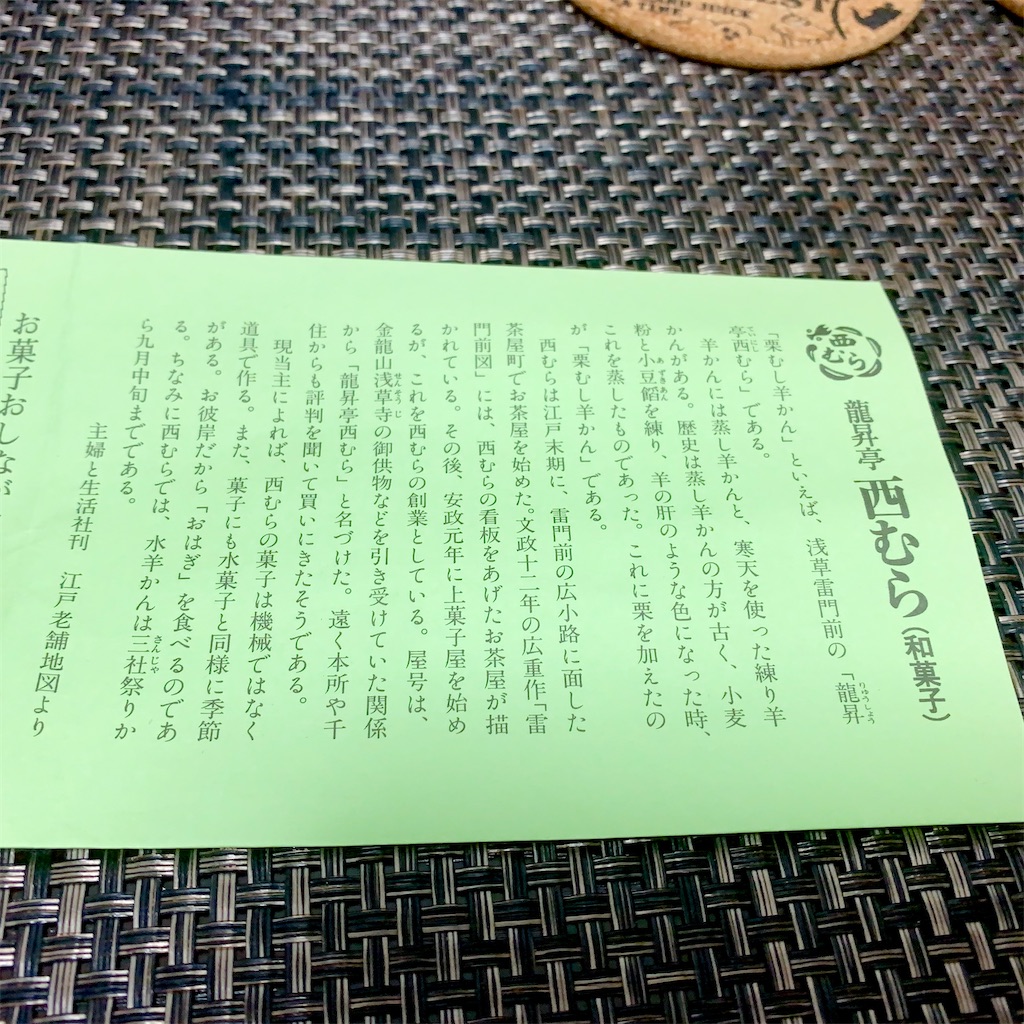 西むら
龍昇亭 西むら(和菓子)
「栗むし羊かん」といえば、浅草雷門前の「龍昇
りゅうしょう
亭西むら」である。
ていにし
羊かんには蒸し羊かんと、寒天を使った練り羊
かんがある。歴史は蒸し羊かんの方が古く、小麦
粉と小豆餡を練り、羊の肝のような色になった時、
あずきあん
これを蒸したものであった。これに栗を加えたの
が「栗むし羊かん」である。
西むらは江戸末期に、雷門前の広小路に面した
茶屋町でお茶屋を始めた。文政十二年の広重作「雷
門前図」には、西むらの看板をあげたお茶屋が描
かれている。その後、安政元年に上菓子屋を始め
るが、これを西むらの創業としている。屋号は、
金龍山浅草寺の御供物などを引き受けていた関係
せんそうじ
から「龍昇亭西むら」と名づけた。遠く本所や千
住からも評判を聞いて買いにきたそうである。
現当主によれば、西むらの菓子は機械ではなく
道具で作る。また、菓子にも水菓子と同様に季節
がある。お彼岸だから「おはぎ」を食べるのであ
る。ちなみに西むらでは、水羊かんは三社祭りか
さんじゃ
ら九月中旬までである。
主婦と生活社刊 江戸老舗地図より
お菓子おしなが